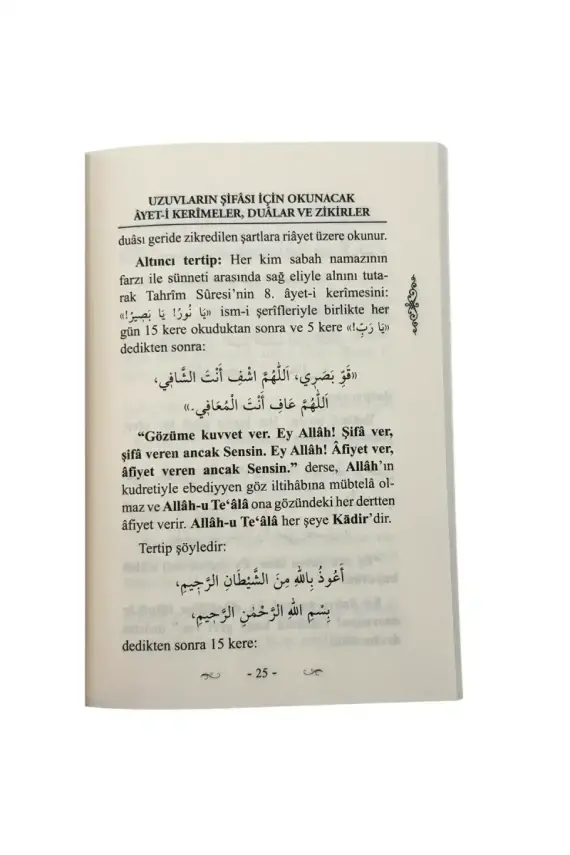 UZUVLARIN ŞİFÂSI İÇİN OKUNACAK
ÂYET-İ KERÎMELER, DUÂLAR VE ZİKİRLER
duâsı geride zikredilen şartlara riâyet üzere okunur.
Altıncı tertip: Her kim sabah namazının
farzı ile sünneti arasında sağ eliyle alnını tuta-
rak Tahrîm Sûresi'nin 8. âyet-i kerîmesini:
«يَا نُورُ! يَا بَصِيرُ!» ism-i şerîfleriyle birlikte her
gün 15 kere okuduktan sonra ve 5 kere «يَا رَبِّ!»
dedikten sonra:
«قَوِّ بَصَرِي، اَللّٰهُمَّ اشْفِ أَنْتَ الشَّافِي،
اَللّٰهُمَّ عَافِ أَنْتَ الْمُعَافِي.»
“Gözüme kuvvet ver. Ey Allâh! Şifâ ver,
şifâ veren ancak Sensin. Ey Allâh! Âfiyet ver,
âfiyet veren ancak Sensin.” derse, Allâh'ın
kudretiyle ebediyyen göz iltihâbına mübtelâ ol-
maz ve Allâh-u Te‘âlâ ona gözündeki her dertten
âfiyet verir. Allâh-u Te‘âlâ her şeye Kādir'dir.
Tertip şöyledir:
أَعُوذُ بِاللّٰهِ مِنَ الشَّيْطَانِ الرَّجِيمِ،
بِسْمِ اللّٰهِ الرَّحْمٰنِ الرَّحِيمِ،
dedikten sonra 15 kere:
- 25 -